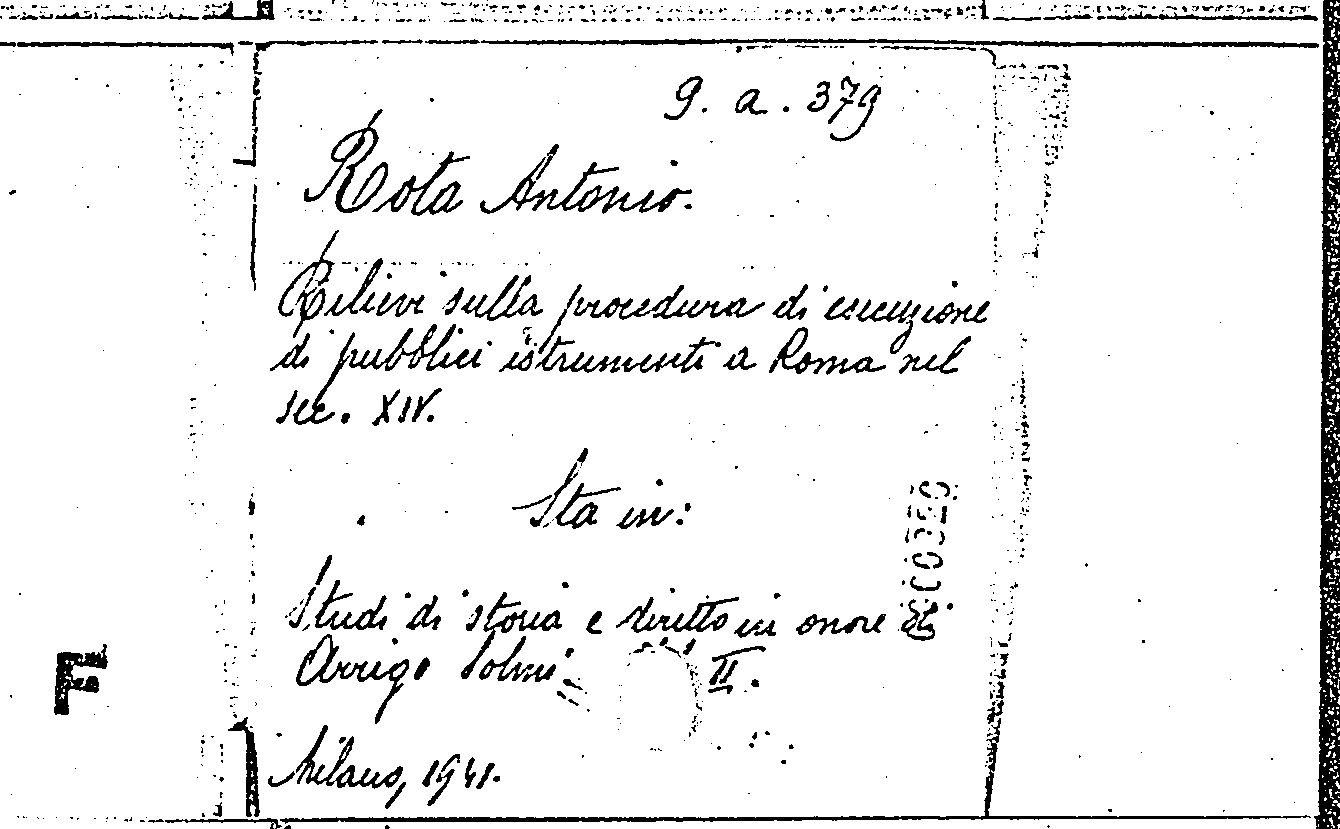 9. a. 379
Rota Antonio.
Rilievi sulla procedura di esecuzione
di pubblici istrumenti a Roma nel
sec. XIV.
Sta in:
Studi di storia e diritto in onore di
Arrigo Solmi. II.
Milano, 1941.
F